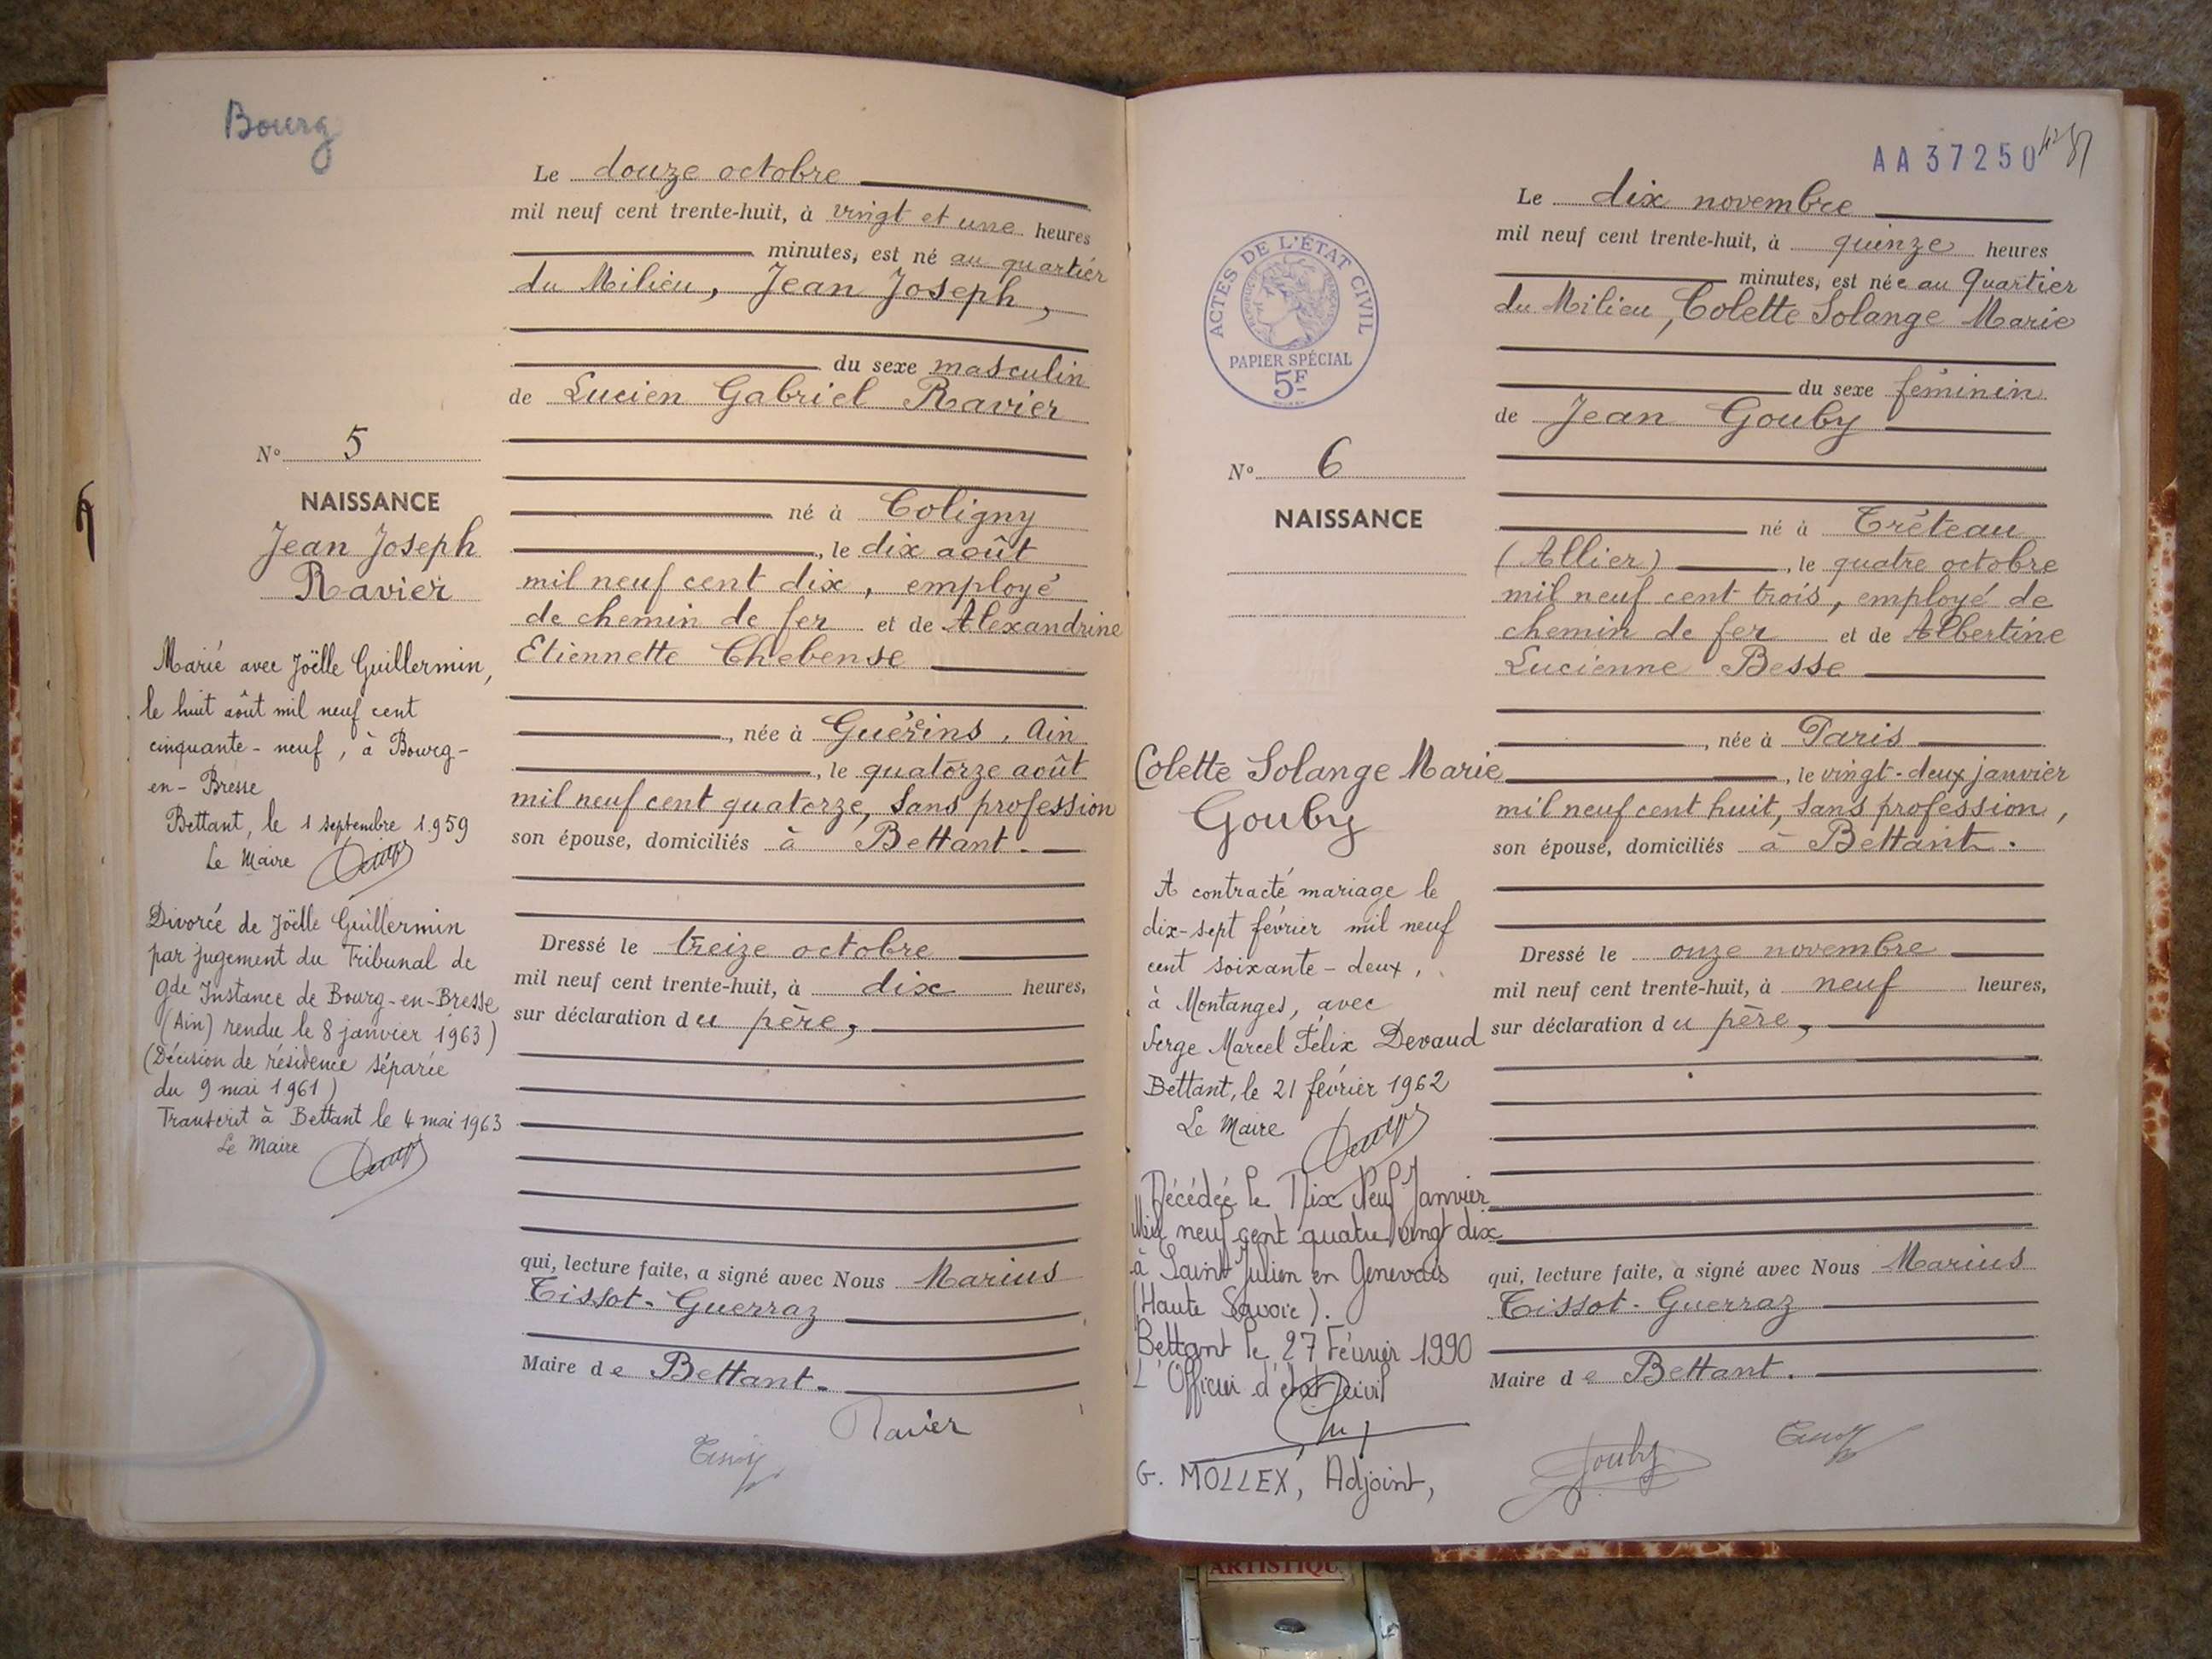 Bourg
Le douze octobre
mil neuf cent trente-huit, à vingt et une heures
minutes, est né au quartier
du Milieu, Jean Joseph,
du sexe masculin
de Lucien Gabriel Ravier
né à Coligny
, le dix août
mil neuf cent dix, employé
de chemin de fer et de Alexandrine
Etiennette Chebense
, née à Guéreins, Ain
, le quatorze août
mil neuf cent quatorze, sans profession
son épouse, domiciliés à Bettant.
Dressé le treize octobre
mil neuf cent trente-huit, à dix heures,
sur déclaration du père,
qui, lecture faite, a signé avec Nous Marius
Tissot-Guerraz
Maire de Bettant.
Ravier
N° 5
NAISSANCE
Jean Joseph
Ravier
Marié avec Joëlle Guillermin,
le huit août mil neuf cent
cinquante-neuf, à Bourg-
en-Bresse
Bettant, le 1 septembre 1959
Le Maire
Divorcé de Joëlle Guillermin
par jugement du Tribunal de
gde Instance de Bourg-en-Bresse
(Ain) rendu le 8 janvier 1963)
(Décision de résidence séparée
du 9 mai 1961)
Transcrit à Bettant le 4 mai 1963
Le Maire
AA 37250
ACTES DE L'ÉTAT CIVIL
PAPIER SPÉCIAL
5F
Le dix novembre
mil neuf cent trente-huit, à quinze heures
minutes, est née au Quartier
du Milieu, Colette Solange Marie
du sexe féminin
de Jean Gouby
né à Tréteau
(Allier), le quatre octobre
mil neuf cent trois, employé de
chemin de fer et de Albertine
Lucienne Besse
, née à Paris
, le vingt-deux janvier
mil neuf cent huit, sans profession,
son épouse, domiciliés à Bettant.
Dressé le onze novembre
mil neuf cent trente-huit, à neuf heures,
sur déclaration du père,
qui, lecture faite, a signé avec Nous Marius
Tissot-Guerraz
Maire de Bettant.
Gouby
N° 6
NAISSANCE
Colette Solange Marie
Gouby
A contracté mariage le
dix-sept février mil neuf
cent soixante-deux,
à Montanges, avec
Serge Marcel Félix Devaud
Bettant, le 21 février 1962
Le Maire
Décédée le Dix Neuf Janvier
Mil neuf cent quatre vingt dix
à Saint Julien en Genevois
(Haute Savoie).
Bettant le 27 Février 1990
L'Officier d'état civil
G. MOLLEX, Adjoint,
ARTISTIQU